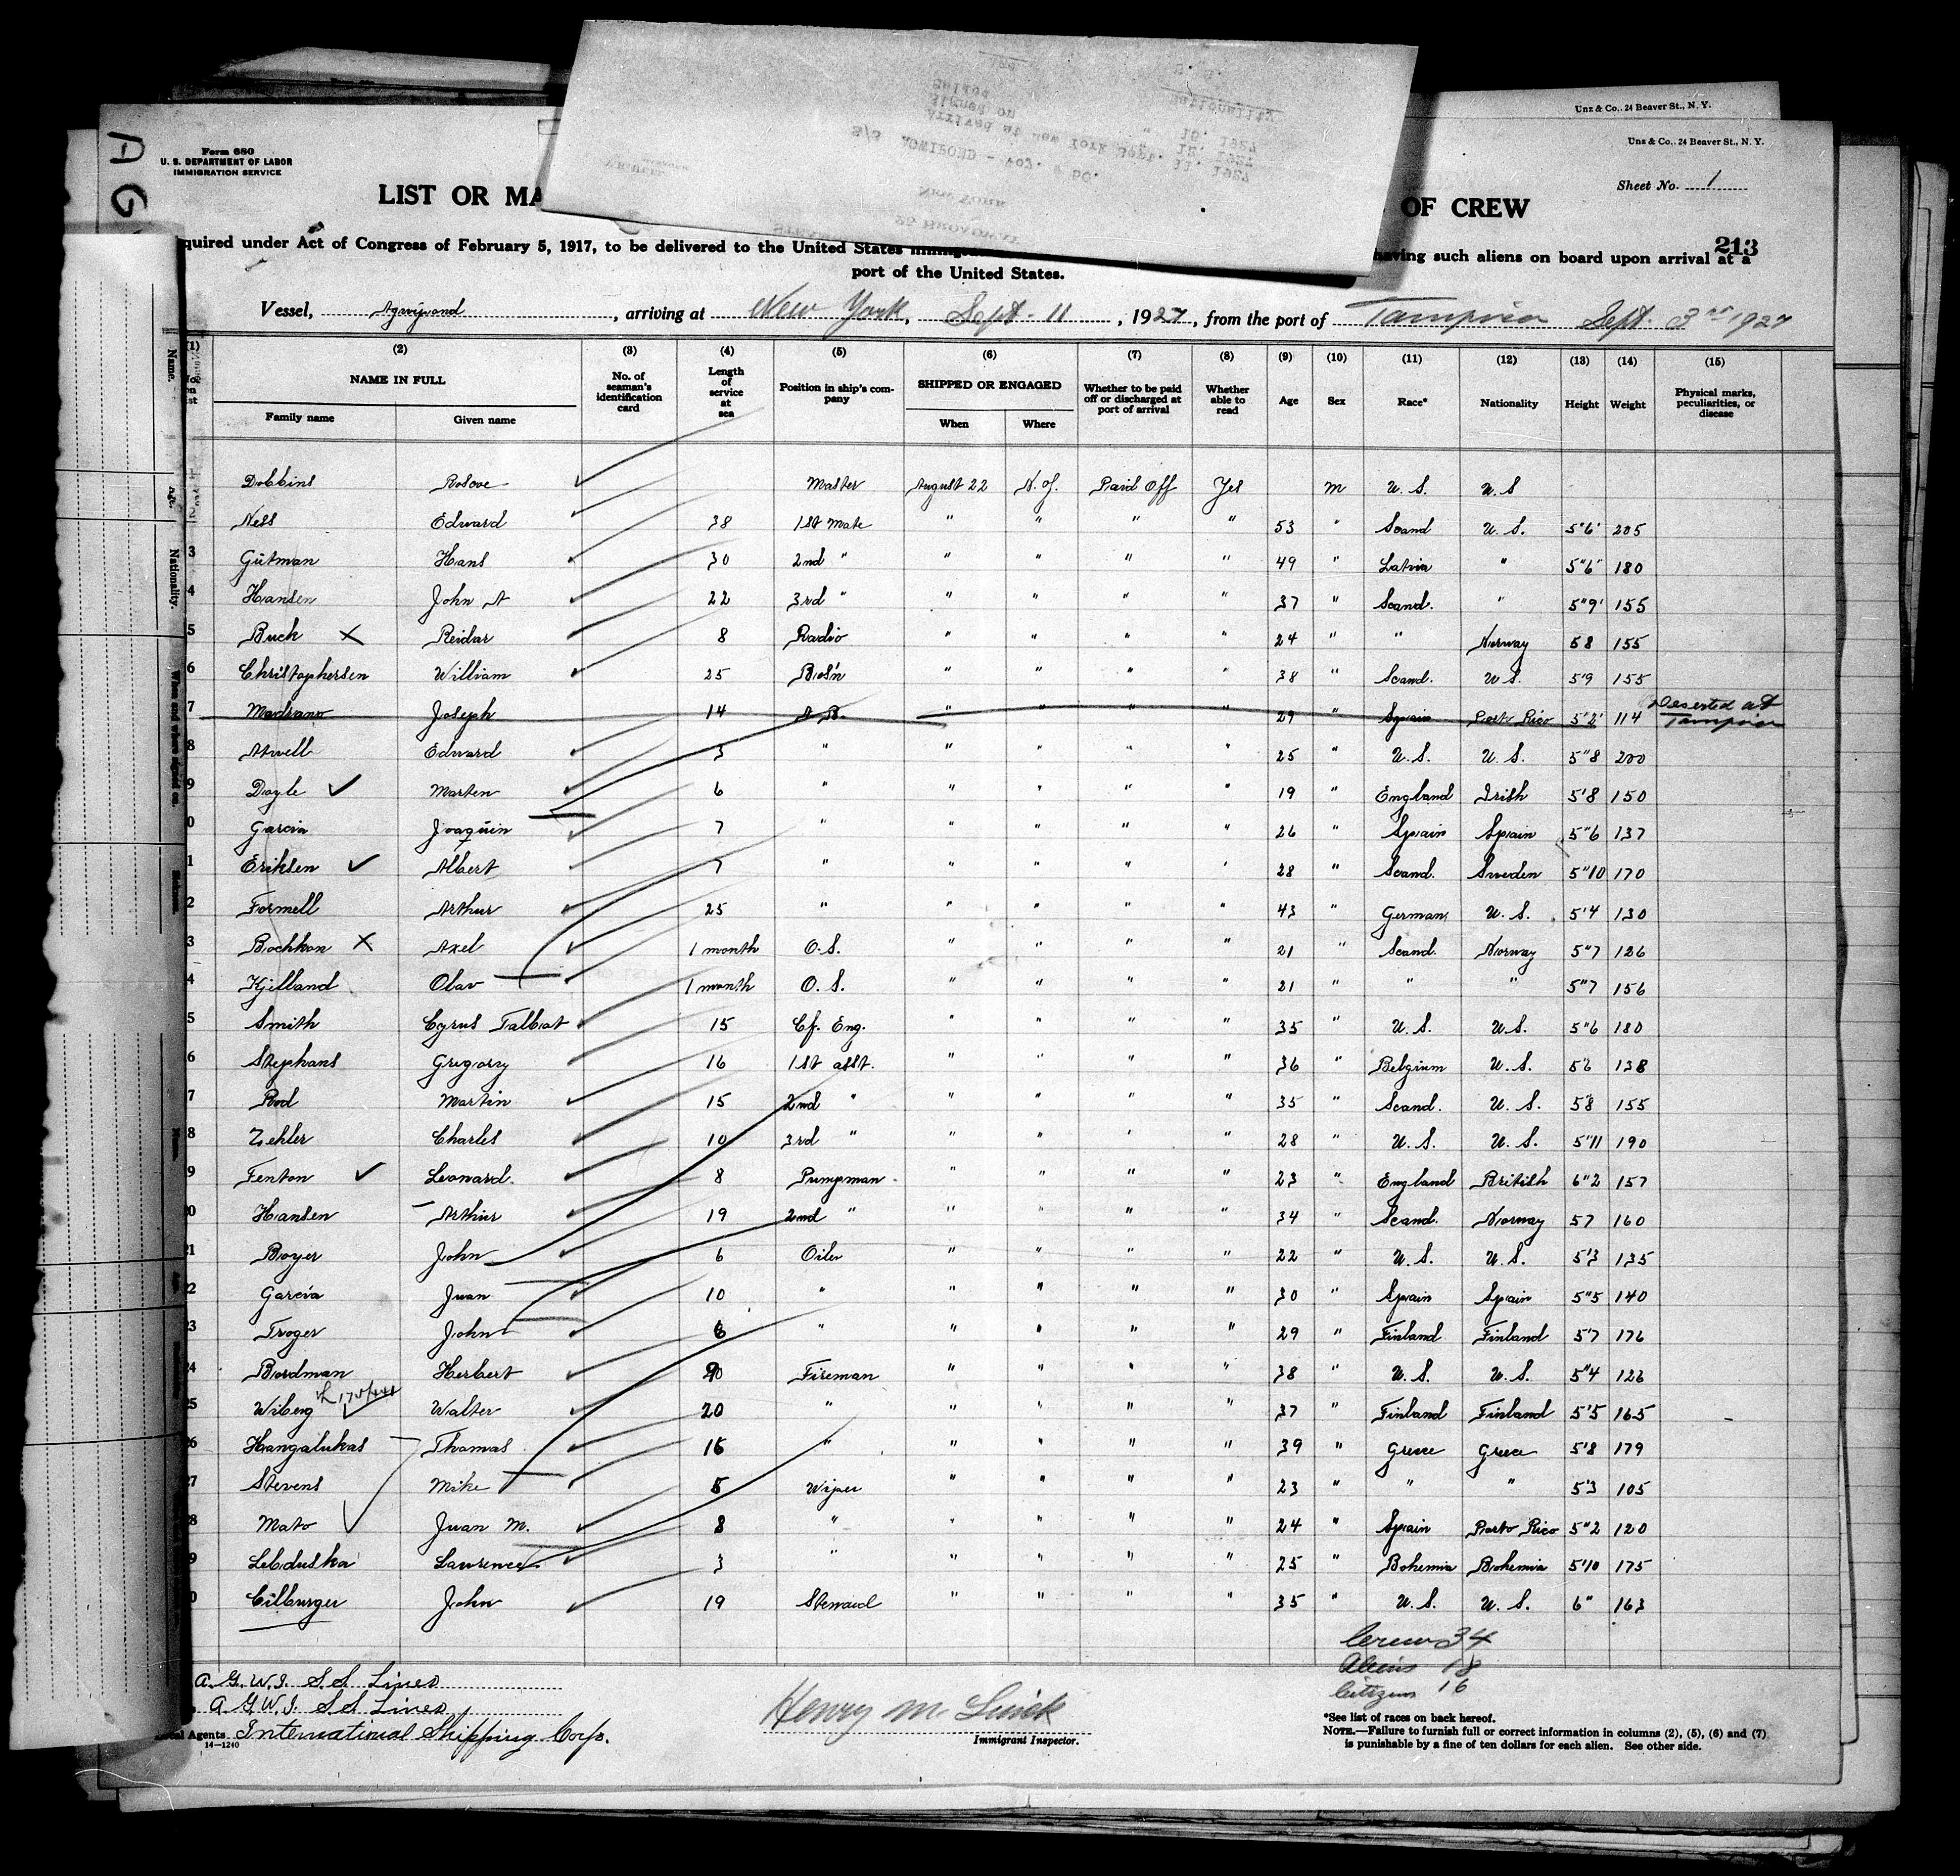 Unz & Co., 24 Beaver St., N. Y.
Unz & Co., 24 Beaver St., N. Y.
A G
Form 680
U. S. DEPARTMENT OF LABOR
IMMIGRATION SERVICE
Sheet No. 1
LIST OR MA OF CREW
213
quired under Act of Congress of February 5, 1917, to be delivered to the United States having such aliens on board upon arrival at a
port of the United States.
Vessel, Agwipond, arriving at New York, Sept. 11, 1927, from the port of Tampico Sept. 3rd 1927
(1) (2) (3) (4) (5) (6) (7) (8) (9) (10) (11) (12) (13) (14) (15)
NAME IN FULL No. of seaman's identification card Length of service at sea Position in ship's company SHIPPED OR ENGAGED Whether to be paid off or discharged at port of arrival Whether able to read Age Sex Race* Nationality Height Weight Physical marks, peculiarities, or disease
Family name Given name When Where
Dobbins Roscoe Master August 22 N.Y. Paid Off Yes m U.S. U.S
Ness Edward 38 1st Mate " " " " 53 " Scand U.S. 5"6' 205
3 Gutman Hans 30 2nd " " " " " 49 " Latvia " 5"6" 180
4 Hansen John A 22 3rd " " " " " 37 " Scand. " 5"9' 155
5 Buck X Reidar 8 Radio " " " " 24 " " Norway 5 8 155
6 Christophersen William 25 Bos'n " " " " 38 " Scand. U.S. 5'9 155
7 Madrano Joseph 14 A.B. " " " " 29 " Spain Porto Rico 5'2' 114 Deserted at Tampico
8 Atwell Edward 3 " " " " " 25 " U.S. U.S. 5"8 200
9 Doyle ✓ Marten 6 " " " " " 19 " England Irish 5'8 150
0 Garcia Joaquin 7 " " " " " 26 " Spain Spain 5"6 137
1 Eriksen ✓ Albert 7 " " " " " 28 " Scand. Sweden 5"10 170
2 Formell Arthur 25 " " " " " 43 " German U.S. 5'4 130
3 Bochkon X Axel 1 month O.S. " " " " 21 " Scand. Norway 5"7 126
4 Kjelland Olav 1 month O.S. " " " " 21 " " " 5"7 156
5 Smith Cyrus Talbot 15 Cf. Eng. " " " " 35 " U.S. U.S. 5"6 180
6 Stephans Gregory 16 1st asst. " " " " 36 " Belgium U.S. 5'6 138
7 Rod Martin 15 2nd " " " " " 35 " Scand. U.S. 5'8 155
8 Zehler Charles 10 3rd " " " " " 28 " U.S. U.S. 5"11 190
9 Fenton ✓ Leonard. 8 Pumpman " " " " 23 " England British 6"2 157
20 Hansen Arthur 19 2nd " " " " " 34 " Scand. Norway 5 7 160
21 Boyer John 6 Oiler " " " " 22 " U.S. U.S. 5'3 135
22 Garcia Juan 10 " " " " " 30 " Spain Spain 5"5 140
23 Troger John 6 " " " " " 29 " Finland Finland 5'7 176
24 Bordman Herbert 20 Fireman " " " " 38 " U.S. U.S. 5"4 122
25 Wiberg Walter 20 " " " " " 37 " Finland Finland 5'5 165
26 Hangalukas Thomas 16 " " " " " 39 " Greece Greece 5'8 179
27 Stevens Mike 5 Wiper " " " " 23 " " " 5'3 105
8 Mato ✓ Juan M. 8 " " " " " 24 " Spain Porto Rico 5"2 120
9 Lebduska Lawrence 3 " " " " " 25 " Bohemia Bohemia 5'10 175
0 Cilburger John 19 Steward " " " " 35 " U.S. U.S. 6" 163
Crew 34
Aliens 18
Citizens 16
A.G.W.I. S.S. Lines
A.G.W.I. S.S. Lines
Agents International Shipping Corp.
14—1240
Immigrant Inspector.
*See list of races on back hereof.
NOTE.—Failure to furnish full or correct information in columns (2), (5), (6) and (7)
is punishable by a fine of ten dollars for each alien. See other side.